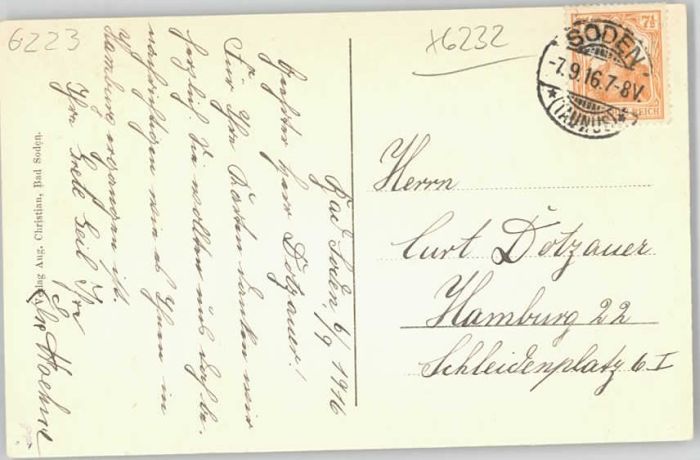 6223
x6232
7½
SODEN
-7.9.16.7-8V.
*(TAUNUS)*
REICH
Bad Soden, 6/9 1916
Geehrter Herr Dotzauer!
Für Ihre Karten danken wir
herzlich. Sie wollten uns doch be-
nachrichtigen wie es Ihnen in
Hamburg ergangen ist.
Ihre Grete Geil Ihre
Herrn
Curt Dotzauer
Hamburg 22
Schleidenplatz 6 I
Verlag Aug. Christian, Bad Soden.